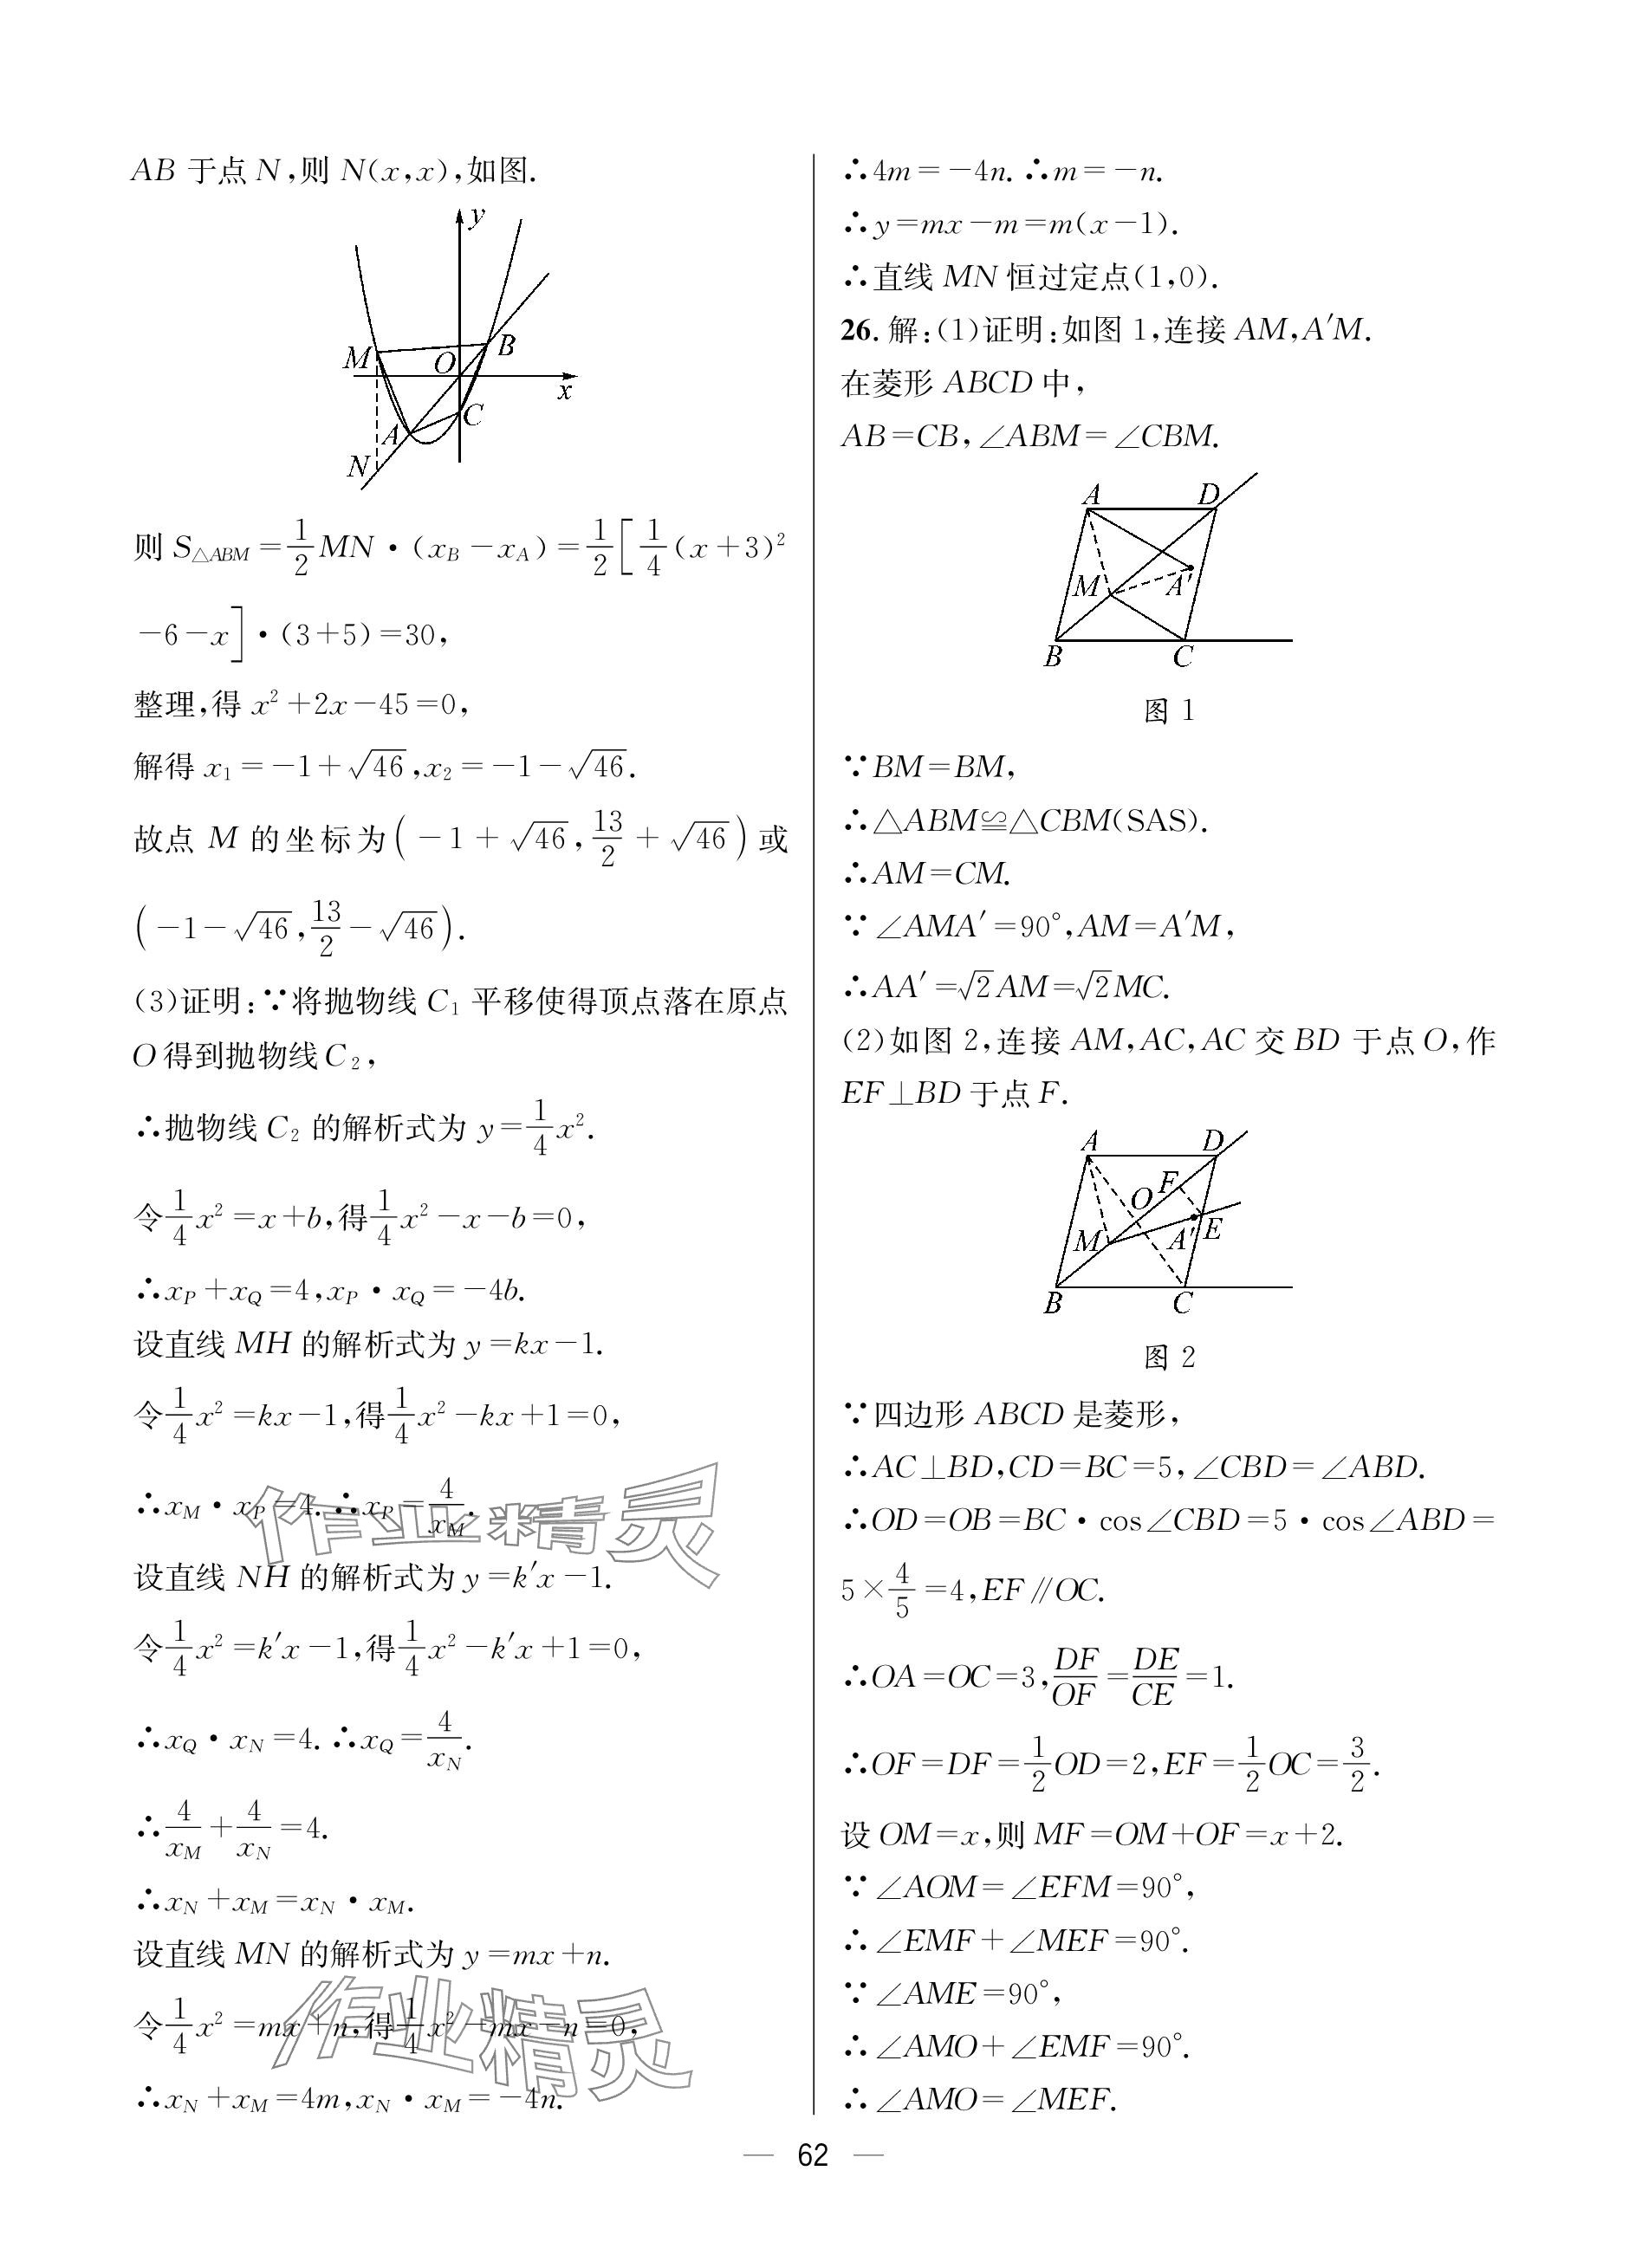 AB 于点 N,则 N(x,x),如图.
y
M
O
B
x
A
C
N
则 S△ABM=1/2 MN·(xB-xA)=1/2[1/4(x+3)²
-6-x]·(3+5)=30,
整理,得 x²+2x-45=0,
解得 x₁=-1+√46,x₂=-1-√46.
故点 M 的坐标为(-1+√46,13/2+√46)或
(-1-√46,13/2-√46).
(3)证明:∵将抛物线 C₁ 平移使得顶点落在原点
O 得到抛物线 C₂,
∴抛物线 C₂ 的解析式为 y=1/4 x².
令 1/4 x²=x+b,得 1/4 x²-x-b=0,
∴xP+xQ=4,xP·xQ=-4b.
设直线 MH 的解析式为 y=kx-1.
令 1/4 x²=kx-1,得 1/4 x²-kx+1=0,
∴xM·xP=4.∴xP=4/xM.
设直线 NH 的解析式为 y=k′x-1.
令 1/4 x²=k′x-1,得 1/4 x²-k′x+1=0,
∴xQ·xN=4.∴xQ=4/xN.
∴4/xM+4/xN=4.
∴xN+xM=xN·xM.
设直线 MN 的解析式为 y=mx+n.
令 1/4 x²=mx+n,得 1/4 x²-mx-n=0,
∴xN+xM=4m,xN·xM=-4n.
作业精灵
作业精灵
∴4m=-4n.∴m=-n.
∴y=mx-m=m(x-1).
∴直线 MN 恒过定点(1,0).
26.解:(1)证明:如图 1,连接 AM,A′M.
在菱形 ABCD 中,
AB=CB,∠ABM=∠CBM.
A
D
M
A′
B
C
图 1
∵BM=BM,
∴△ABM≌△CBM(SAS).
∴AM=CM.
∵∠AMA′=90°,AM=A′M,
∴AA′=√2AM=√2MC.
(2)如图 2,连接 AM,AC,AC 交 BD 于点 O,作
EF⊥BD 于点 F.
A
D
O
F
M
A′
E
B
C
图 2
∵四边形 ABCD 是菱形,
∴AC⊥BD,CD=BC=5,∠CBD=∠ABD.
∴OD=OB=BC·cos∠CBD=5·cos∠ABD=
5×4/5=4,EF∥OC.
∴OA=OC=3,DF/OF=DE/CE=1.
∴OF=DF=1/2 OD=2,EF=1/2 OC=3/2.
设 OM=x,则 MF=OM+OF=x+2.
∵∠AOM=∠EFM=90°,
∴∠EMF+∠MEF=90°.
∵∠AME=90°,
∴∠AMO+∠EMF=90°.
∴∠AMO=∠MEF.
— 62 —